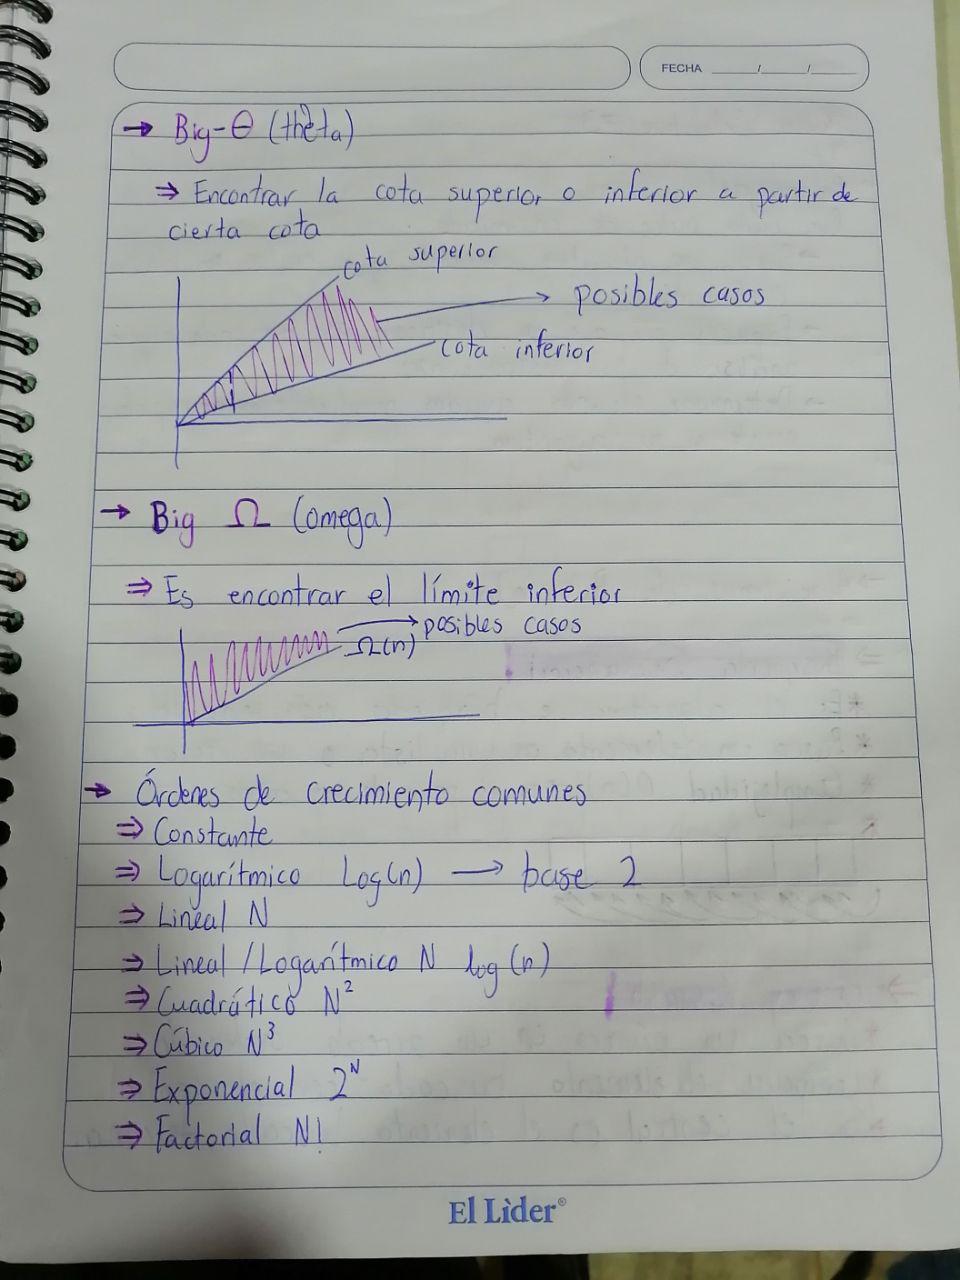 FECHA ____/____/____
→ Big-θ (theta)
⇒ Encontrar la cota superior o inferior a partir de
cierta cota
cota superior
→ posibles casos
cota inferior
→ Big Ω (omega)
⇒ Es encontrar el límite inferior
→ posibles casos
Ω(n)
→ Órdenes de crecimiento comunes
⇒ Constante
⇒ Logarítmico Log(n) → base 2
⇒ Lineal N
⇒ Lineal/Logarítmico N log(n)
⇒ Cuadrático N²
⇒ Cúbico N³
⇒ Exponencial 2ᴺ
⇒ Factorial N!
El Lìder®